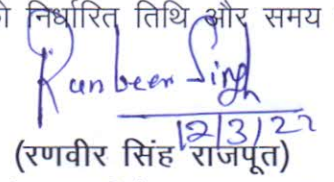 निर्धारित तिथि और समय
Runbeer Singh
12/3/22
(रणवीर सिंह राजपूत)